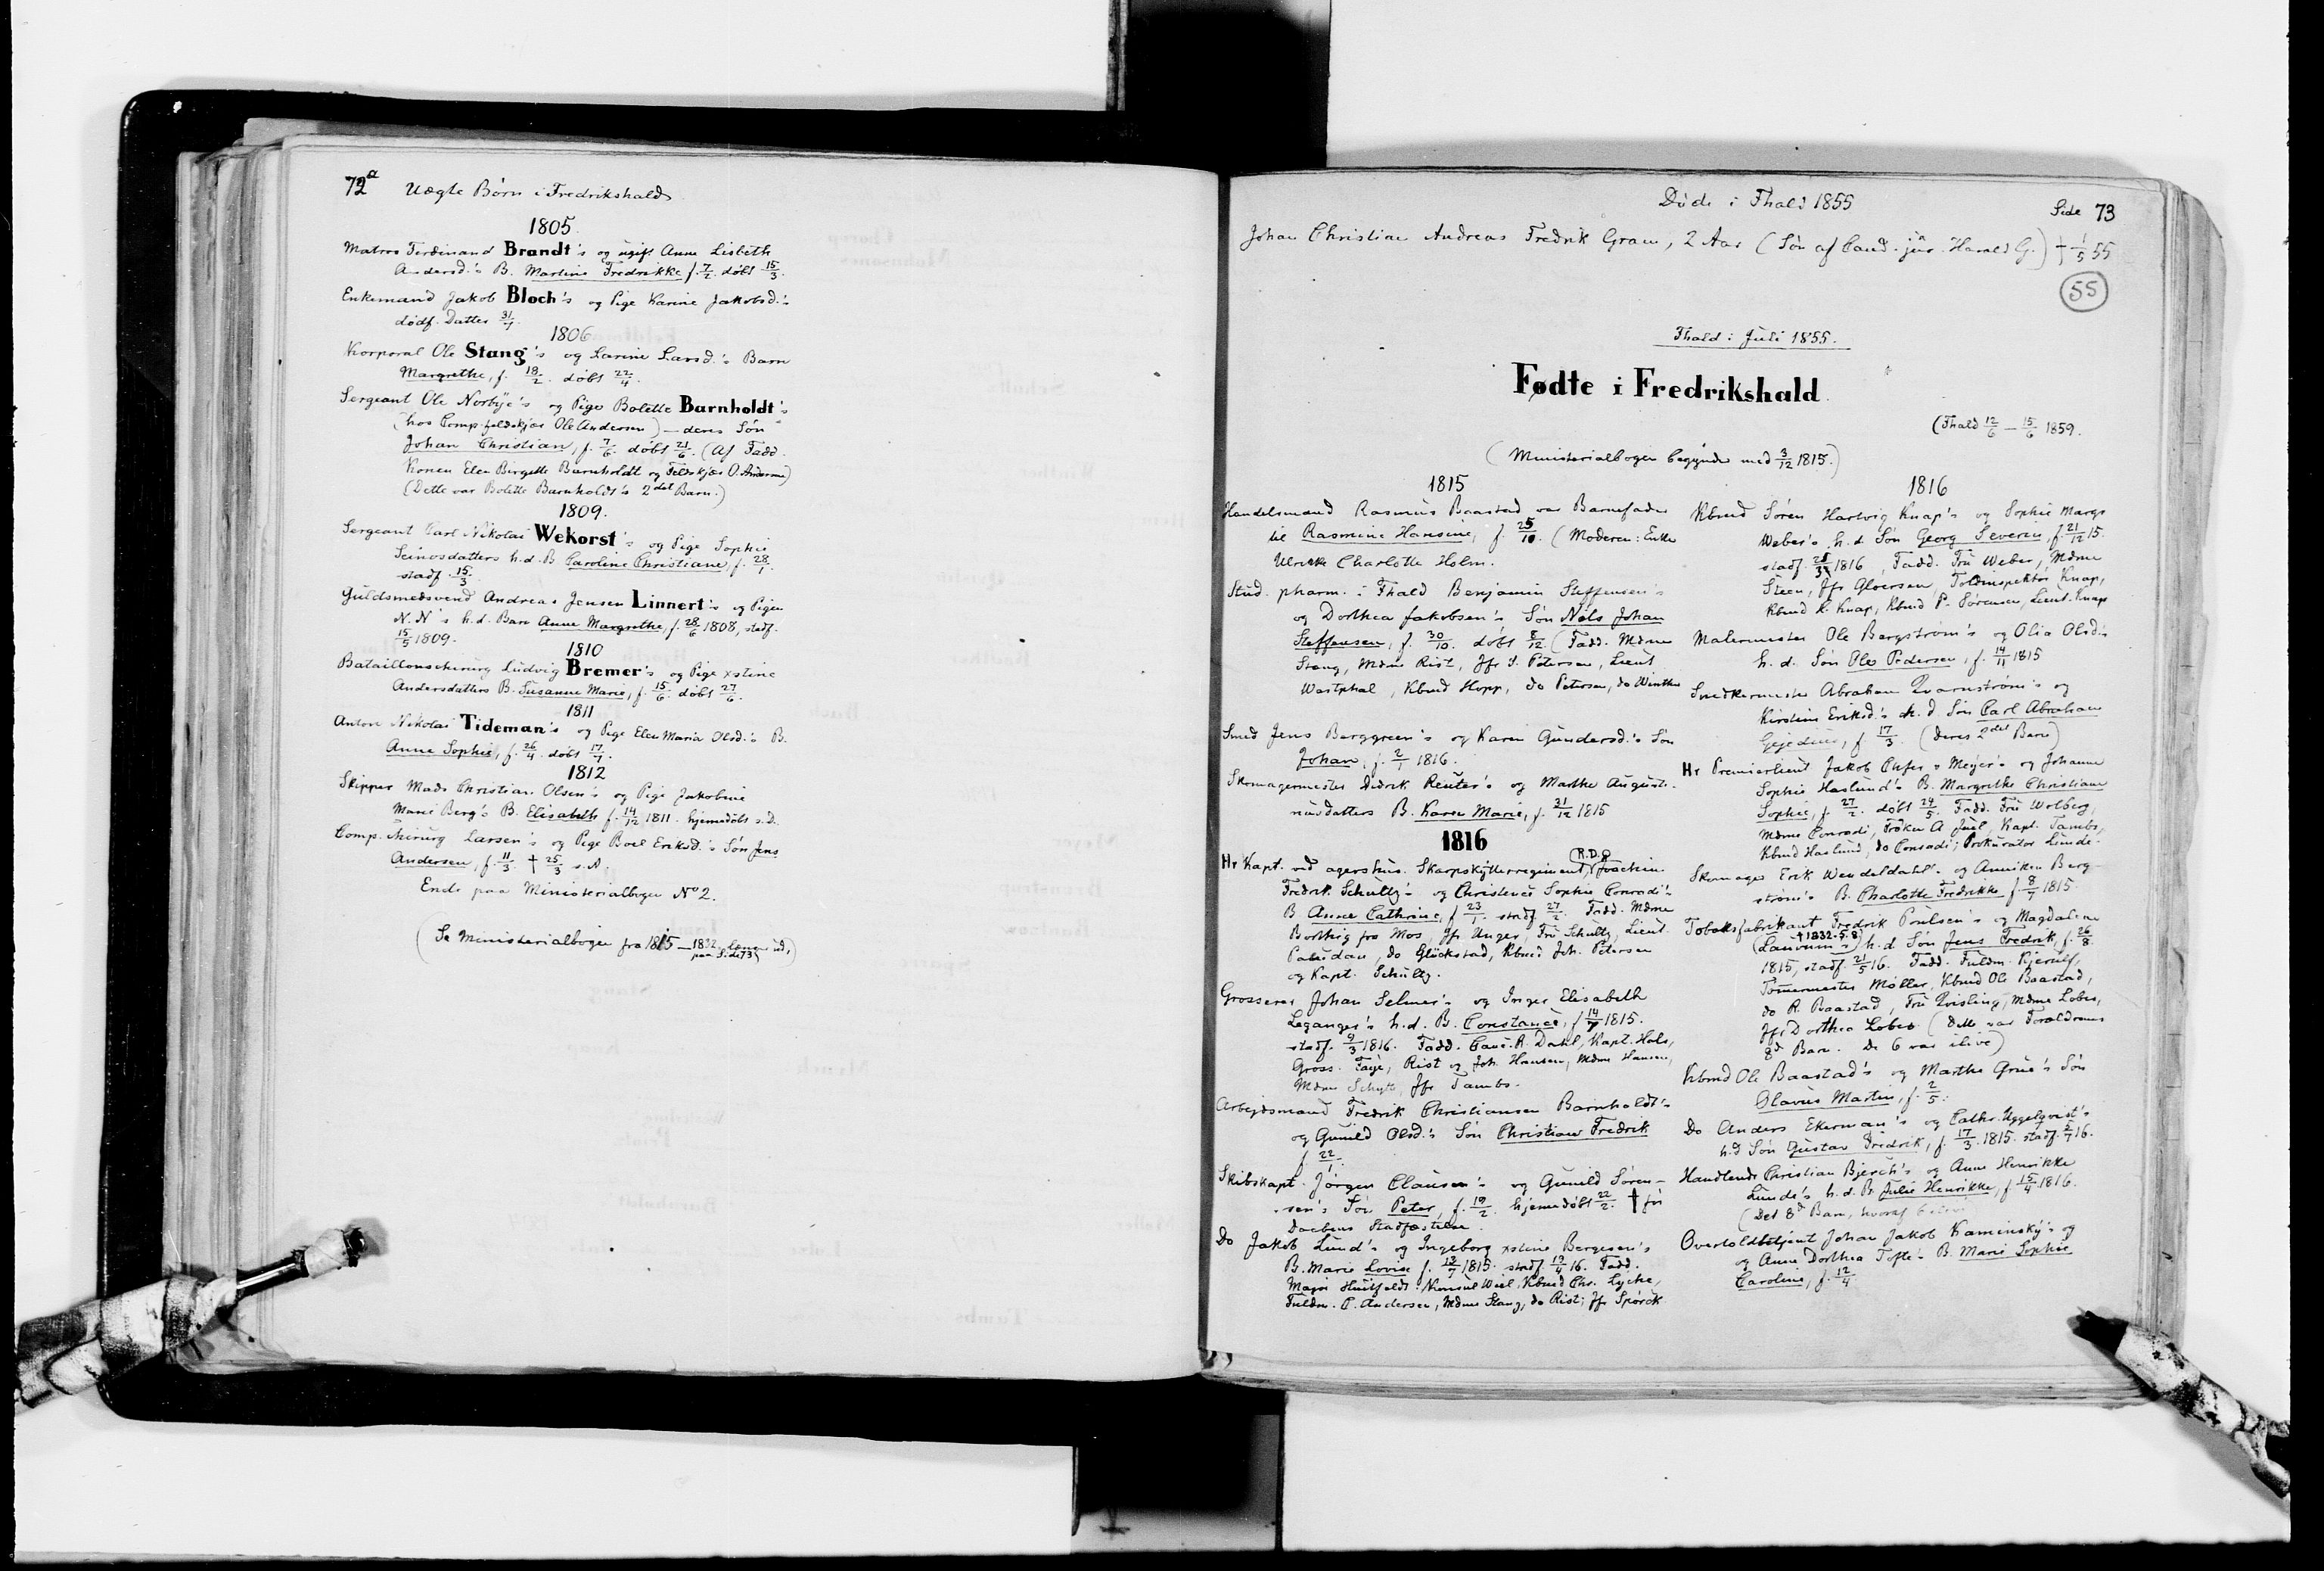 72a Uægte Børn i Fredrikshald
1805.
Matros Ferdinand Brandt's og ugift Anne Lisbeth
Andersd.'s B. Martine Fredrikke f. 7/2. døbt 15/3.
Enkemand Jakob Bloch's og Pige Karine Jakobsd.'s
dødf. Datter 31/7.
1806
Korporal Ole Stang's og Larine Larsd.'s Barn
Margrethe, f. 18/2. døbt 22/4.
Sergeant Ole Norbye's og Pige Bolette Barnholdt's
(hos Comp.feldskjær Ole Andersen) – deres Søn
Johan Christian, f. 7/6. døbt 21/6. (Af Fadd.
Konen Elen Birgette Barnholdt og Feldskjær O. Andersen)
(Dette var Bolette Barnholdt's 2det Barn.)
1809.
Sergeant Carl Nikolai Wekorst's og Pige Sophie
h.d. B Caroline Christiane, f. 28/1.
stadf. 15/3.
Guldsmedsvend Andreas Jensen Linnert's og Pigen
N.N's h.d. Barn Anne Margrethe, f. 28/6 1808, stadf.
15/5 1809.
1810
Bataillonschirurg Ludvig Bremer's og Pige xstine
Andersdatters B. Susanne Marie, f. 15/6. døbt 27/6.
1811
Anton Nikolai Tideman's og Pige Elen Maria Olsd.'s B.
Anne Sophie, f. 26/4. døbt 17/7.
1812
Skipper Mads Christian Olsen's og Pige Jakobine
Marie Berg's B. Elisabeth f. 14/12 1811. hjemmedøbt s.D.
Comp. chirurg Larsen's og Pige Boel Eriksd.'s Søn Jens
Andersen, f. 11/3. † 25/3 s.A.
Ende paa Ministerialbogen No 2.
(Se Ministerialbogen fra 1815–1832, længer ud,
paa Side 73)
Døde i Fhald 1855
Side 73
Johan Christian Andreas Fredrik Gram, 2 Aar (Søn af Cand. jur. Harald G.) † 1/5 55
55
Fhald i Juli 1855.
Fødte i Fredrikshald
(Fhald 12/6 – 15/6 1859.
(Ministerialbogen begynder med 3/12 1815.)
1815
Handelsmand Rasmus Baastad var Barnefader
til Rasmine Hansine, f. 25/10. (Moderen: Enke
Ulrikke Charlotte Holm.
Stud. pharm. i Fhald Benjamin Steffensen's
og Dorthea Jakobsen's Søn Nels Johan
Steffensen, f. 30/10. døbt 8/12 (Fadd. Mdme
Stang, Mdme Rist, Jfr S. Petersen, Lieut
Westphal, Kbmd Hopp, do Petersen, do Winther
Smed Jens Berggreen's og Karen Gundersd.'s Søn
Johan, f. 2/1 1816.
Skomagermester Didrik Reuter's og Marthe Augusti-
nusdatters B. Karen Marie, f. 31/12 1815
1816
Hr Kapt. ved agershus. Skarpskytterregiment, (R.D.O) Joachim
Fredrik Schultz's og Christence Sophie Conradi's
B Anne Cathrine, f 23/1. stadf. 27/2. Fadd. Mdme
Borthig fra Mos, Jfr Unger, Fru Schultz, Lieut.
Paludan, do Glückstad, Kbmd Joh. Petersen
og Kapt. Schultz.
Grosserer Johan Selmer's og Inger Elisabeth
Leganger's h.d. B. Constance, f 14/7 1815.
stadf. 9/3 1816. Fadd. Canc.R. Dahl, Kapt. Hals,
Gross. Faye, Rist og Joh. Hansen, Mdme Hansen,
Mdme Schytt, Jfr Tambs.
Arbejdsmand Fredrik Christiansen Barnholdt's
og Gunild Olsd.'s Søn Christian Fredrik
f. 22/1.
Skibskapt. Jørgen Clausen's og Gunild Søren-
sen's Søn Peter, f. 19/2. hjemmedøbt 22/2. † før
Daabens Stadfæstelse.
Do Jakob Lund's og Ingeborg xstine Bergesen's
B. Marie Lovise f. 13/7 1815. stadf. 19/4 16. Fadd.
Major Huitfeldt, Konsul Wiel, Kbmd Chr. Lycke,
Fuldm. C. Andersen, Mdme Stang, do Rist; Jfr Spørck
1816
Kbmd Søren Hartvig Knap's og Sophie Margr
Weber's h.d Søn Georg Severin, f. 21/12 15.
stadf. 25/3 1816, Fadd. Fru Weber, Mdme
Steen, Jfr Gloersen, Toldinspektør Knap,
Kbmd K. Knap, Kbmd P. Sørensen, Lieut. Knap
Malermester Ole Bergstrøm's og Olia Olsd.'s
h.d. Søn Ole Pedersen, f. 14/11 1815
Snedkermester Abraham Qvarnstrøm's og
Kirstine Eriksd.'s h.d Søn Carl Abraham
f. 17/3. (deres 2det Barn)
Hr Premierlieut Jakob Chfer v Meyer's og Johanne
Sophie Haslund's B. Margrethe Christiane
Sophie, f. 27/2. døbt 24/5. Fadd. Fru Wolberg,
Mdme Conradi, Frøken A Juel, Kapt. Tambs,
Kbmd Haslund, do Conradi; Prokurator Lunde.
Skomager Erik Wendeldahl's og Anniken Berg-
strøm's B. Charlotte Fredrikke f. 8/7 1815
Tobaksfabrikant Fredrik Poulsen's og Magdalene
(Laurum's †1832-5.8) h.d Søn Jens Fredrik, f. 26/8.
1815, stadf. 21/5 16. Fadd. Fuldm. Kjerulf,
Tømmermester Møller, Kbmd Ole Baastad,
do R. Baastad, Fru Qvisling, Mdme Lobes,
Jfr Dorthea Lobes (dette var Forældrenes
8d Barn. De 6 var ilive)
Kbmd Ole Baastad's og Marthe Grue's Søn
Olavus Martin, f. 2/5.
Do Anders Ekerman's og Cathr. Uggelqvist's
h.d Søn Gustav Fridrik, f. 17/3. 1815. stadf. 2/7 16.
Handlende Christian Bjerch's og Anne Henrikke
Lunde's h.d. B. Julie Henrikke, f 15/4 1816.
(Det 8d Barn, hvoraf 6
Overtoldbetjent Johan Jakob Kaminsky's og
og Anne Dorthea Tofte's B. Marie Sophie
Caroline, f. 12/4